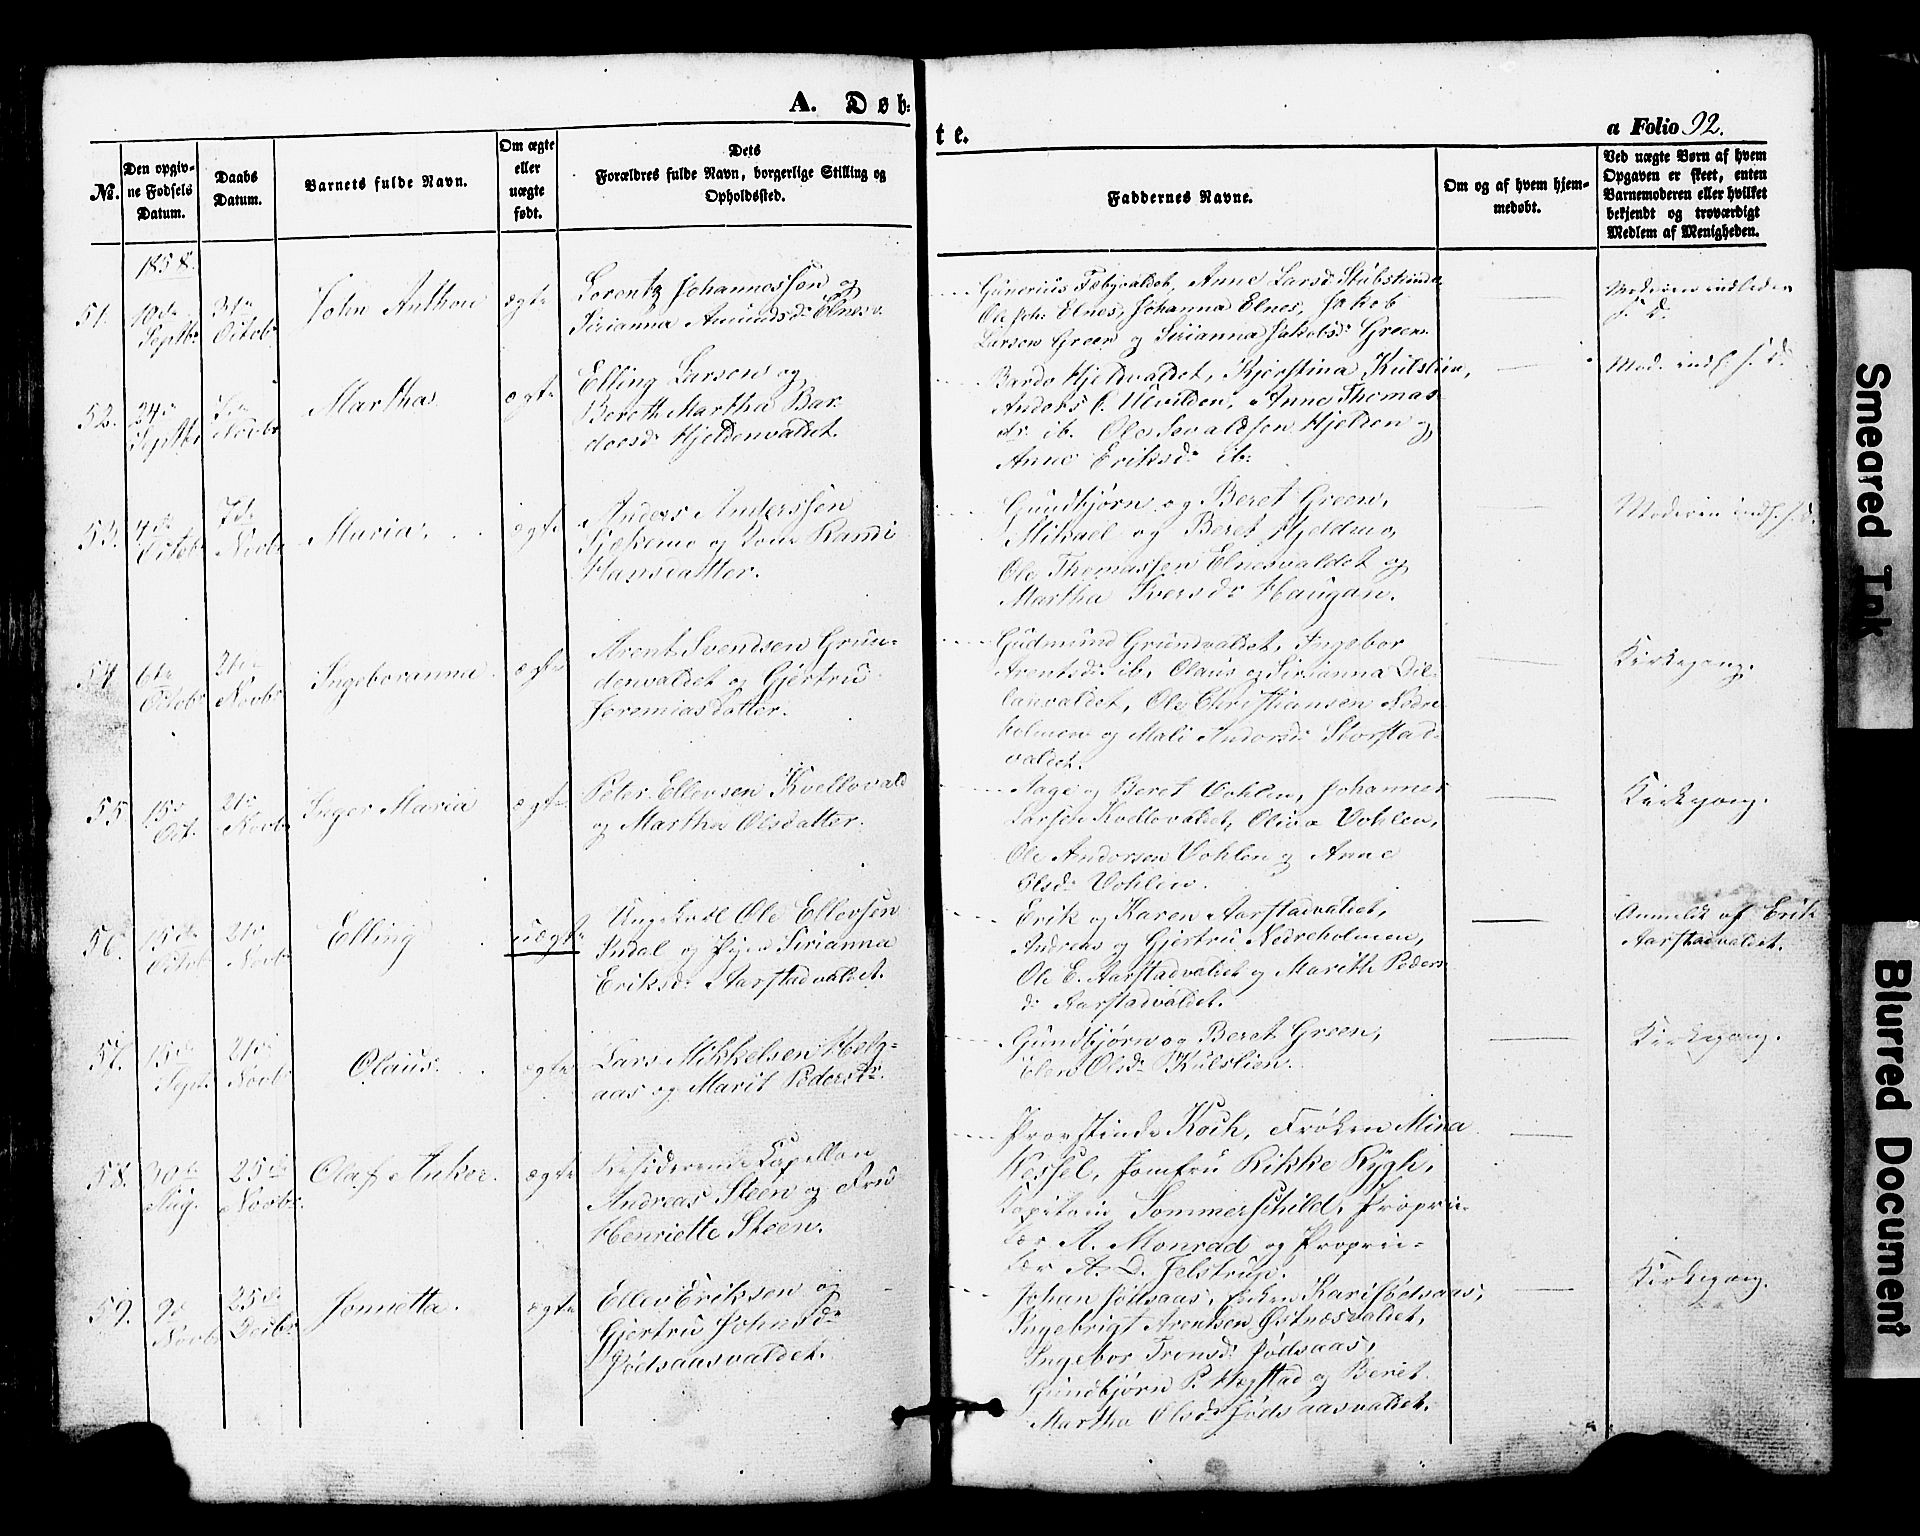 A. Døb:
te.
a Folio 92.
№.
Den opgiv-
ne Fødsels
Datum.
Daabs
Datum.
Barnets fulde Navn.
Om ægte
eller
uægte
født.
Dets
Forældres fulde Navn, borgerlige Stilling og
Opholdssted.
Faddernes Navne.
Om og af hvem hjem-
medøbt.
Ved uægte Børn af hvem
Opgaven er skeet, enten
Barnemoderen eller hvilket
bekjendt og troværdigt
Medlem af Menigheden.
1858.
51.
10de
Septbr
31te
Octobr
John Anthon
ægte
Lorentz Johannessen og
Sirianna Amundsdr Elnesv.
Gunerius Anne Larsd
Ole Johs Elnes, Johanna Elnes, Jakob
Larsen Green og Sirianna Jakobsdr Green.
Moderen indleden
s. D.
52.
24de
Septbr
7de
Novbr
Marthas
ægte
Elling Larsen og
Bereth Martha Bar-
doesdr Hjeldenvaldet.
Bardo Hjeldvaldet, Kjerstina Kulslien,
Andors O. Ulvilden, Anne Thomas-
dr ib. Ole Sevaldsen Hjelden og
Anne Eriksdr ib.
Mod. indl. s. D.
53.
4de
Octobr
7de
Novbr
Maria.
ægte
Anders Anderssen
og Kone Randi
Hansdatter.
Gundbjørn og Beret Green,
Mikael og Beret Hjeldmo,
Ole Thomassen Elnesvaldet og
Martha Iversdr Haugan.
Moderen indl. s. D.
54.
6te
Octobr
21de
Novbr
Ingeboranna.
ægte
Arent Svendsen Grun-
denvaldet og Gjertru
Jeremiasdatter.
Gudmund Grundvaldet, Ingebor
Arentsdr ib, Olaus og Sirianna Dil-
lanvaldet, Ole Christiansen Nedre
holmen og Mali Andorsdr Storstad-
valdet.
Kirkegang.
55.
15de
Oct.
21de
Novbr
Inger Maria
ægte
Peter Ellevsen Kvellovald
og Martha Olsdatter.
Aage og Beret Vohlen, Johannes
Larsen Kvellovaldet, Oliva Vohlen,
Ole Andorsen Vohlen og Anne
Olsdr Vohlen.
Kirkegang.
56.
15de
Octobr
21de
Novbr
Elling
uægte
Ungekarl Ole Ellevsen
Indal og Pige Sirianna
Eriksdr Aarstadvaldet.
Erik og Karen Aarstadvaldet,
Andreas og Gjertru Nedreholmen,
Ole E. Aarstadvaldet og Marith Peders-
dr Aarstadvaldet.
Anmeldt af Erik
Aarstadvaldet.
57.
15de
Sept.
21de
Novbr
Olaus.
ægte
Lars Mikkelsen Helg-
aas og Marit Pedersdr.
Gundbjørn og Beret Green,
Elen Olsdr Kulslien.
Kirkegang.
58.
30te
Aug.
25de
Novbr.
Olaf Anker.
ægte
Residerende Capellan
Andreas Steen og Fru
Henriette Steen.
Provstinde Koch, Frøken Mina
Wessel, Jomfru Rikke Rygh,
Kapitain Sommerschild, Proprie-
tær A. Monrad og Proprie-
tær A. D. Jelstrup.
59.
9de
Novbr
25de
Decbr
Jonnetta.
ægte
Ellev Eriksen og
Gjertru Johnsdr
Jødsaasvaldet.
Johan Jødsaas, Kari Jødsaas,
Ingebrigt Arentsen Østnæsvaldet,
Ingebor Trensdr Jødsaas,
Gundbjørn P. Hægstad og Beret
Martha Olsdr Jødsaasvaldet.
Kirkegang.
Smeared Ink
Blurred Document